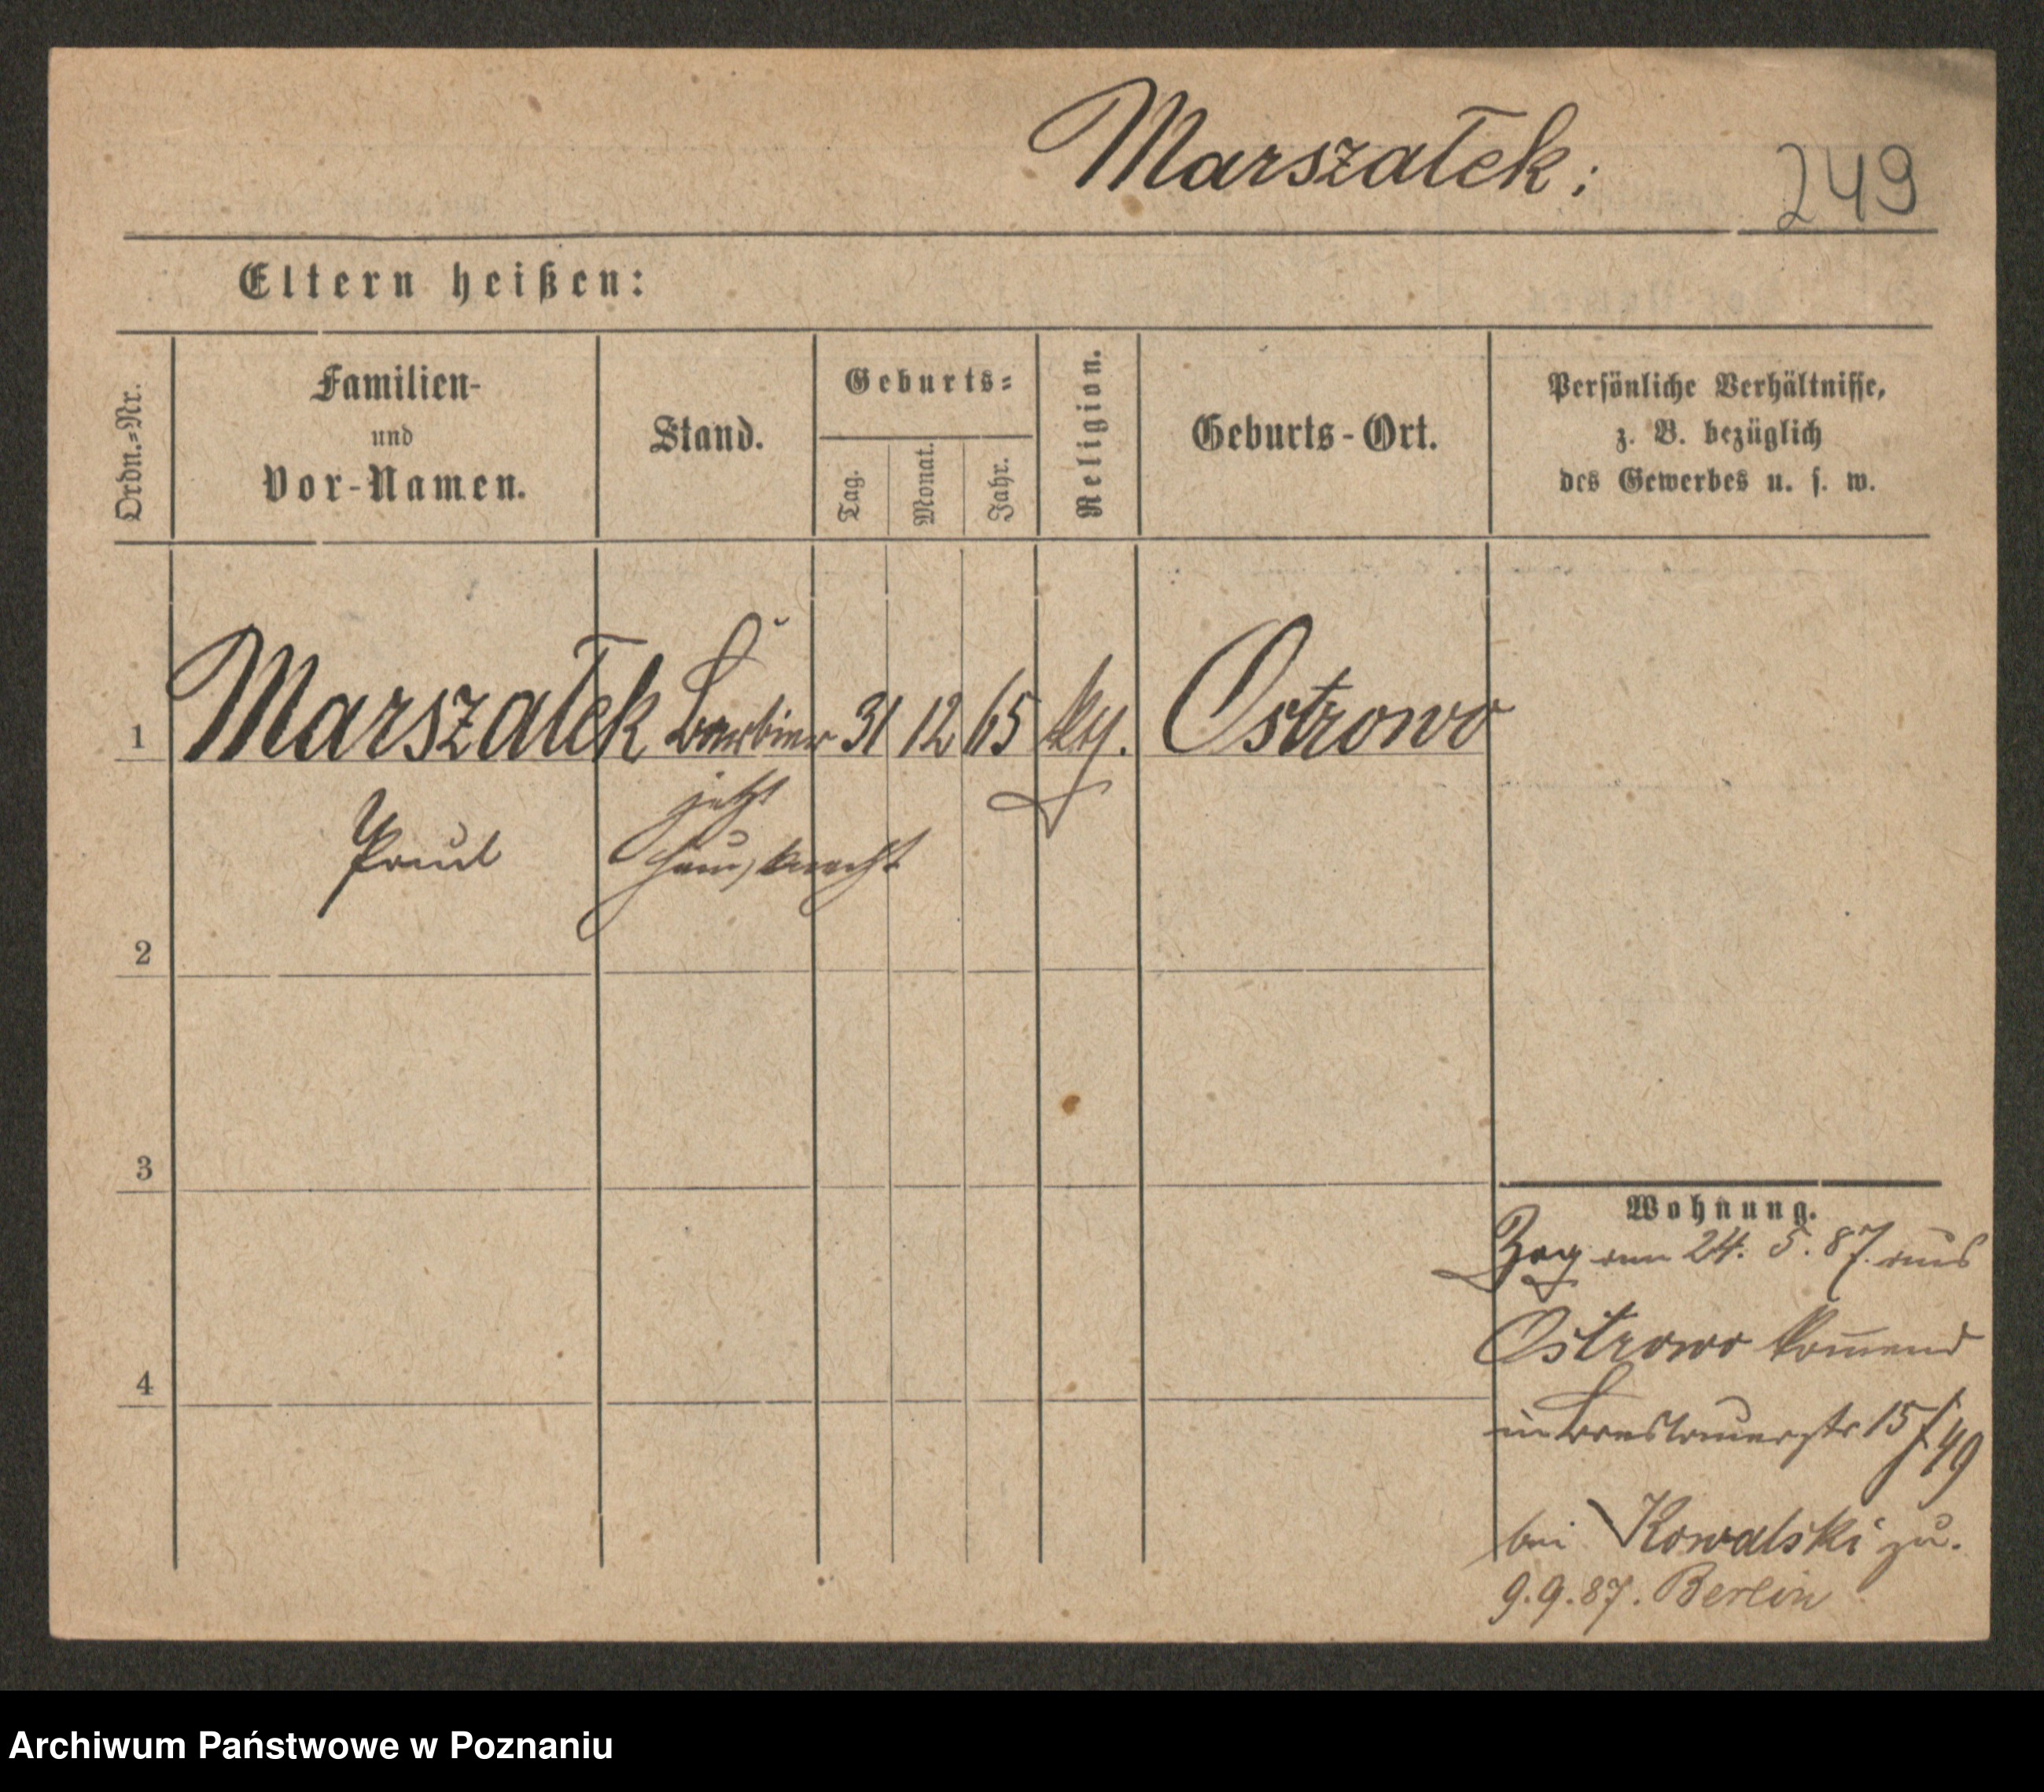 Marszałek;
249
Eltern heißen:
Ordn.=Nr.
Familien-
und
Vor-Namen.
Stand.
Geburts=
Tag.
Monat.
Jahr.
Religion.
Geburts-Ort.
Persönliche Verhältnisse,
z. B. bezüglich
des Gewerbes u. s. w.
1 Marszałek Barbier 31 12 65 Ostrowo
jetzt
Paul Hausknecht
2
3
4
Wohnung.
Zog am 24. 5. 87. aus
Ostrowo kom̄end
in Breslauerstr 15/49
bei Kowalski zu.
9.9.87. Berlin
Archiwum Państwowe w Poznaniu